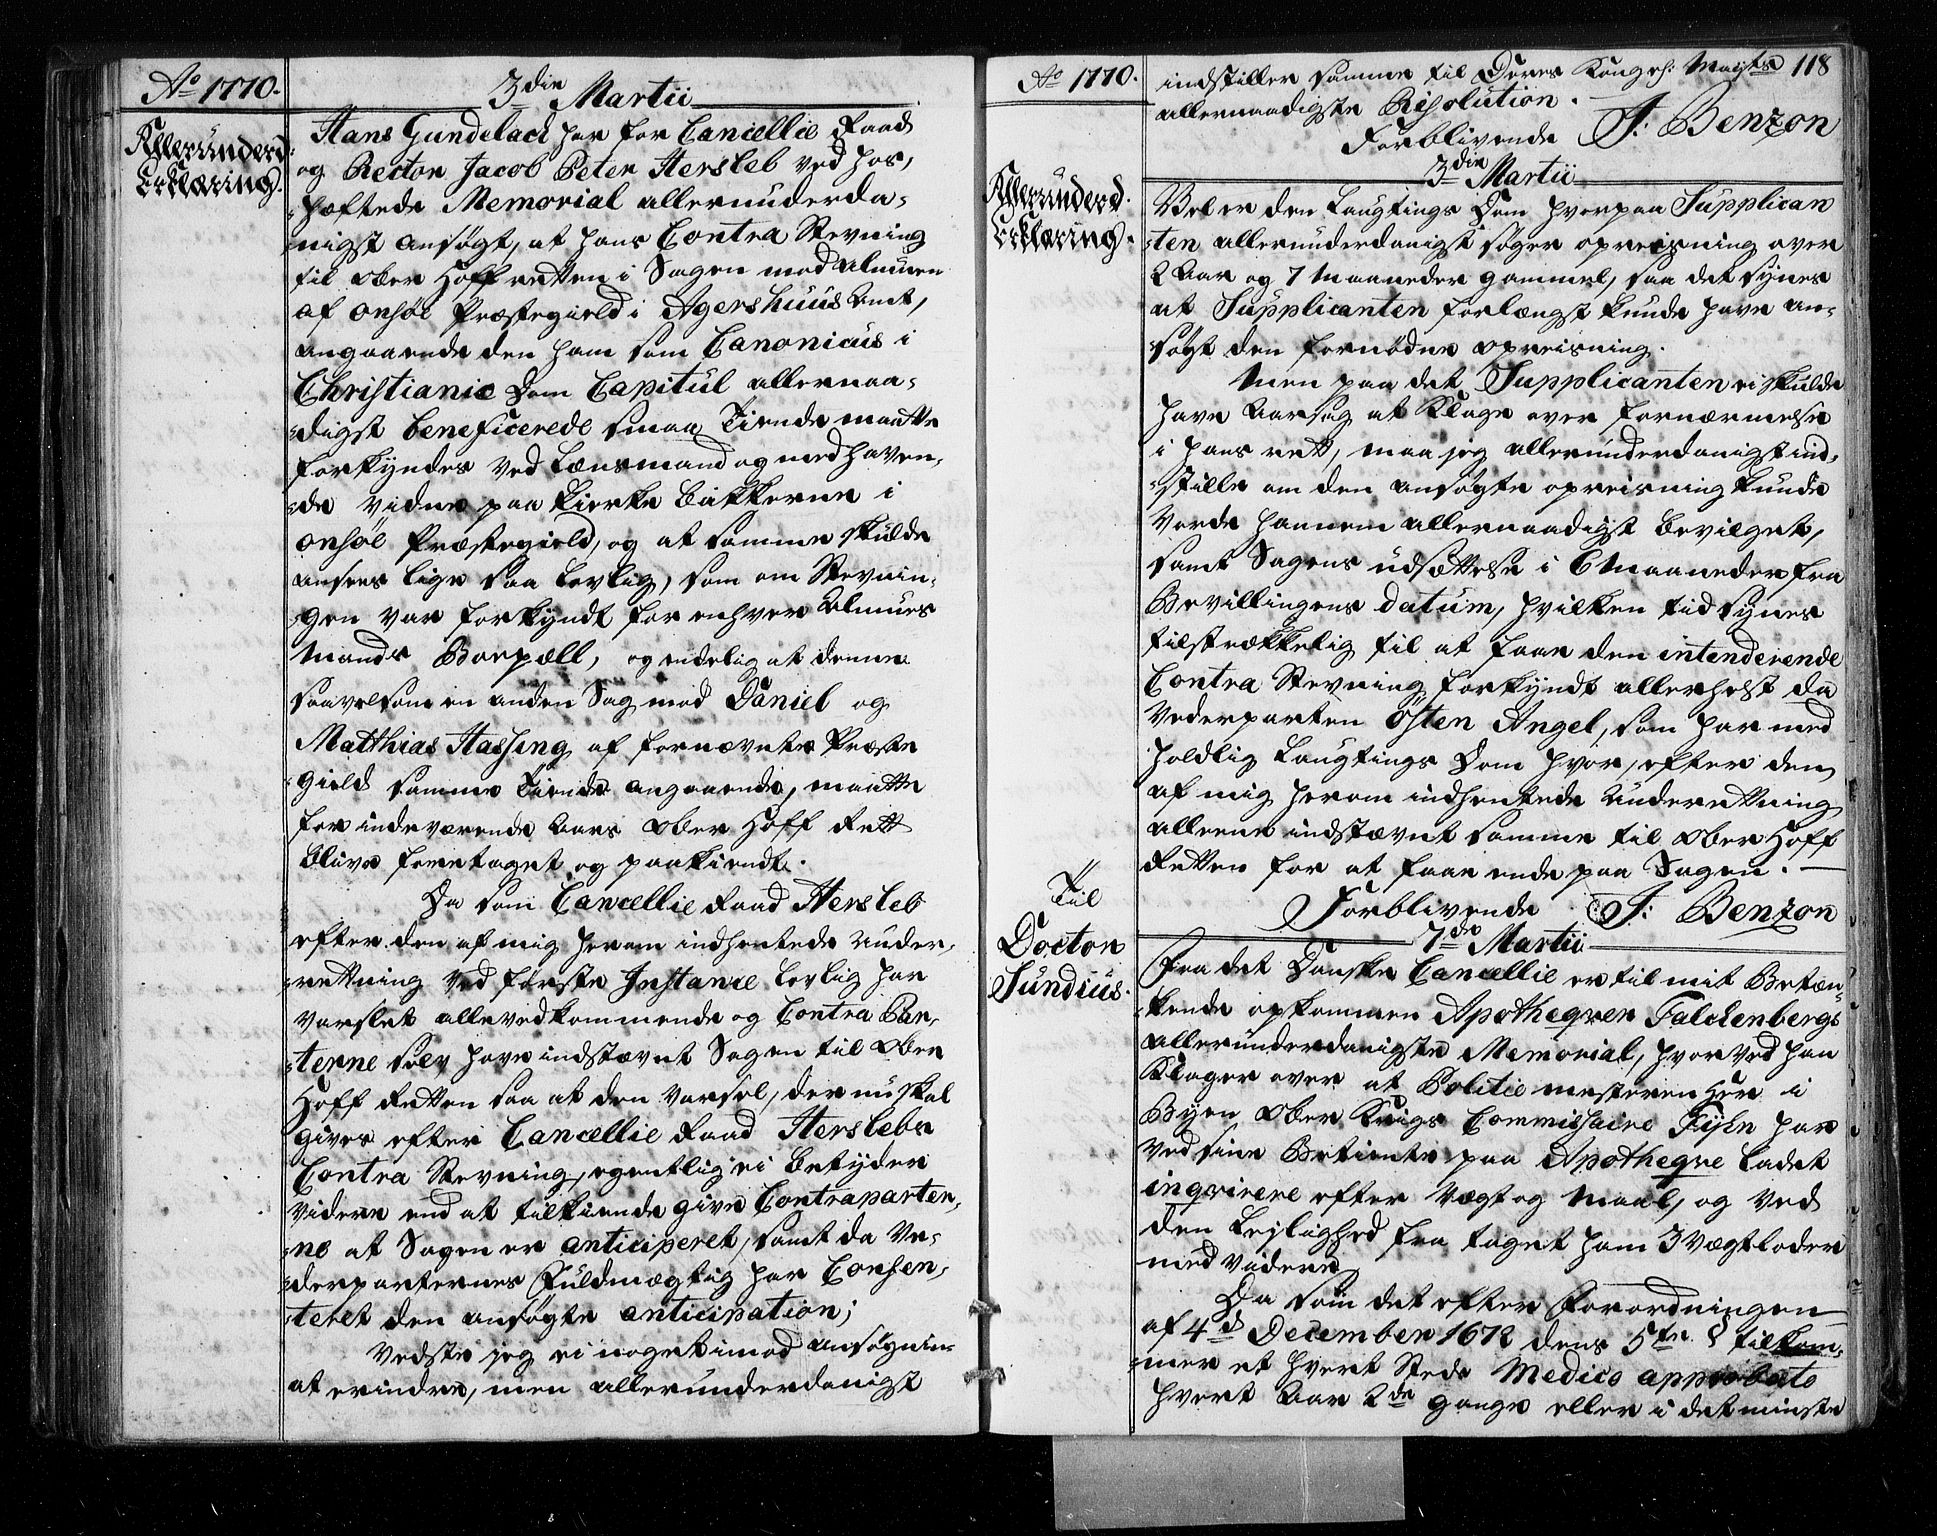 Ao 1770.
3die Martii
Allerunderd:
Erklæring.
Hans Gundelach har for Cancellie Raad
og Rector Jacob Peter Hersleb ved hos,
hæftede Memorial allerunderda-
nigst ansøgt, at hans Contra Stevning
til Ober Hoff Retten i Sagen mod Almuen
af Onsøe Præstegield i Agershuus Amt,
angaaende den ham som Canonicus i
Christianiæ Dom Capitul allernaa-
digst beneficerede smaa Tiende maatte
forkyndes ved Lænsmand og medhaven-
de vidne paa Kierke Bakkerne i
Onsøe Præstegield, og at samme skulde
ansees lige saa lovlig, som om Stevnin-
gen var forkyndt for enhver Almues
Mands Boepæll, og endelig at denne
saavelsom en anden Sag mod Daniel og
Matthias Hassing af fornævnte Præste
Gield samme Tiende angaaende, maatte
for indeværende Aars Ober Hoff Rett
blive foretaget og paakiendt.
Da som Cancellie Raad Hersleb
efter den af mig herom indhentede Under-
rettning ved første Instance lovlig har
varslet alle vedkommende og Contra Par-
terne selv have indstævnt Sagen til Ober
Hoff Retten saa at den Varsel, der nu skal
gives efter Cancellie Raad Herslebs
Contra Stevning, egentlig ei betyder
videre end at tilkiende give Contraparter-
ne at Sagen er anticiperet, samt da Ve-
derparternes Fuldmægtig har Consen-
teret den ansøgte anticipation;
Vedste jeg ei noget imod ansøgnin-
at erindre, men allerunderdanigst
Ao 1770.
118
indstiller samme til Deres Kongel: Mayts
allernaadigste Resolution.
Forblivende J: Benzon
3die Martii
Allerunderd.
Erklæring.
Vel er den Laugtings Dom hvorpaa Supplican
ten allerunderdanigst søger opreisning over
2 Aar og 7 Maaneder gammel, saa det synes
at Supplicanten forlængst kunde have an-
søgt den fornødne opreisning.
Men paa det Supplicanten ei skulde
have Aarsag at Klage over fornærmelse
i hans rett, maa jeg allerunderdanigst ind-
stille om den ansøgte opreisning kunde
vorde hannem allernaadigst bevilget,
samt Sagens udsættelse i 6 Maaneder fra
Bevillingens datum, hvilken tid synes
tilstrækkelig til at faae den intenderende
Contra Stevning forkyndt allerhelst da
Vederparten Østen Angel, som har med
holdlig Laugtings Dom hvor, efter den
af mig herom indhentede Underrettning
alleene indstævnt samme til Ober Hoff
Retten for at faae ende paa Sagen.
Forblivende J: Benzon
7de Martii
Til
Doctor
Sundius.
Fra det Danske Cancellie er til mit Betæn-
kende opkommen Apotheqver Falckenbergs
allerunderdanigste Memorial, hvorved han
Klager over at Politie mesteren her i
Byen Ober Krigs Commissaire Fiysn har
ved sine Betiente paa Apotheqve ladet
inqvirere efter Vægt og Maal, og ved
den Lejlighed fra taget ham 3 Vægtloder
med videre
Da som det efter Forordningen
af 4de December 1672 dens 5te § tilkom-
mer et hvert Steds Medico approbato
hvert Aar 2de gange eller i det minste